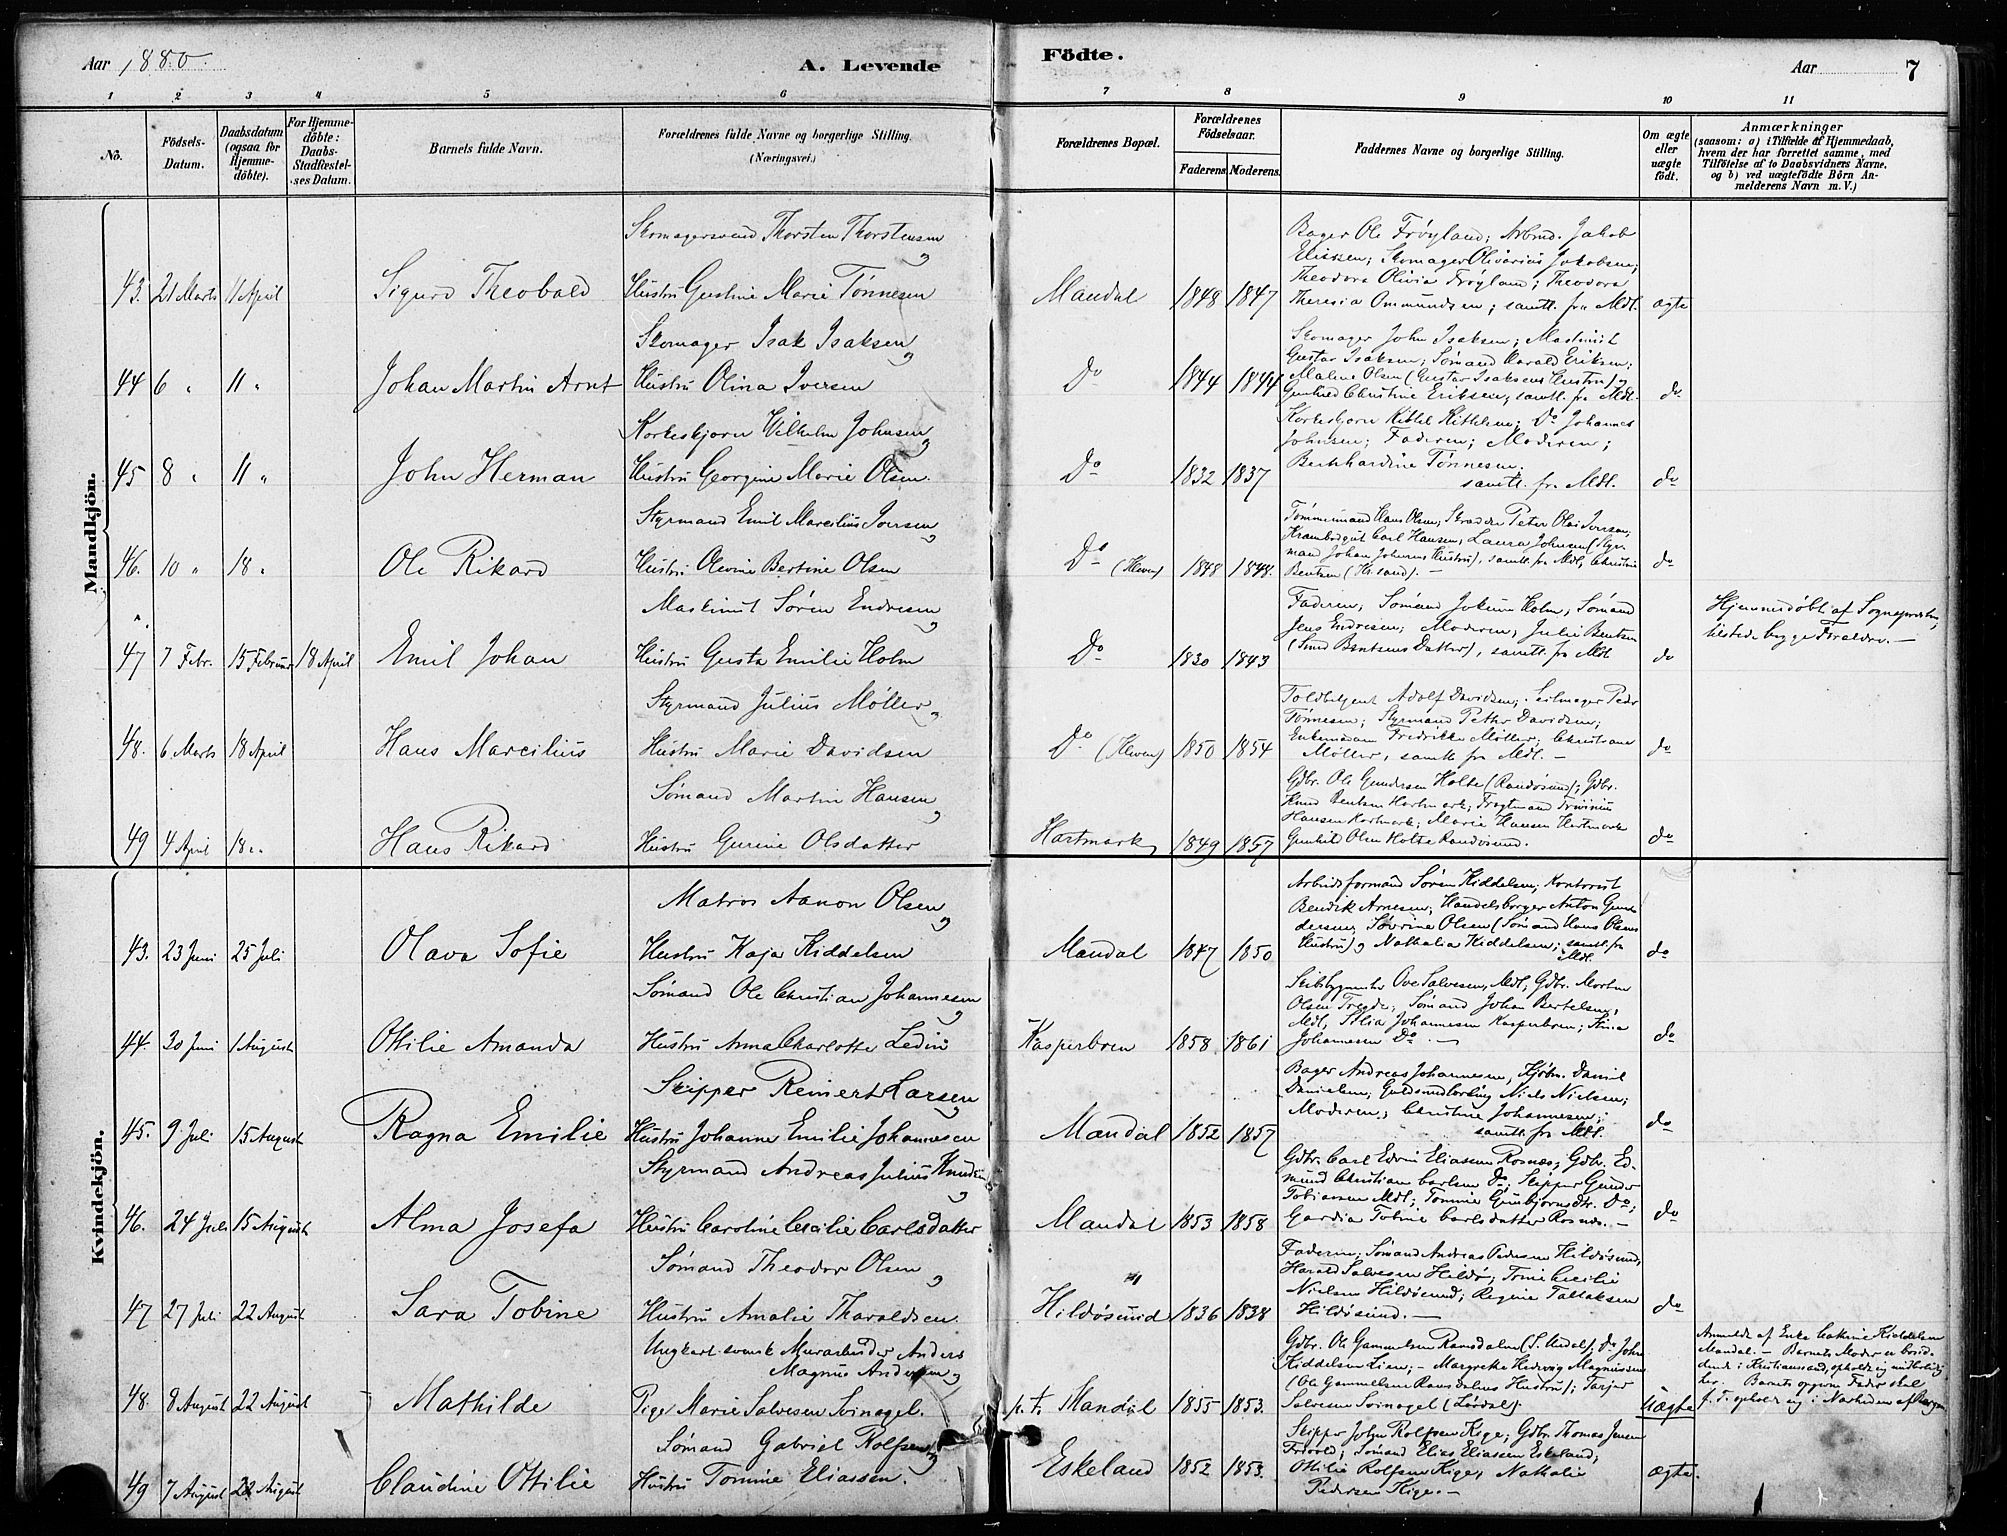 Aar 1880.
A. Levende
Födte.
Aar
7
1 2 3 4 5 6 7 8 9 10 11
No.
Födsels-Datum.
Daabsdatum (ogsaa for Hjemmedöbte).
For Hjemmedöbte: Daabs-Stadfæstelses Datum.
Barnets fulde Navn.
Forældrenes fulde Navne og borgerlige Stilling. (Næringsvei.)
Forældrenes Bopæl.
Forældrenes Födselsaar.
Faderens Moderens
Faddernes Navne og borgerlige Stilling.
Om ægte eller uægte födt.
Anmærkninger
(saasom: a) i Tilfælde af Hjemmedaab, hvem der har forrettet samme, med Tilföielse af to Daabsvidners Navne, og b) ved uægtefödte Börn Anmelderens Navn m. V.)
Mandkjön.
Skomagersvend Thorsten Thorstensen
43. 21 Marts 11 April Sigurd Theobald Hustru Gustine Marie Tønnesen Mandal 1848 1847
Bager Ole Frøyland; Arbmd. Jakob
Eliesen; Skomager Olivarius Jakobsen;
Theodora Olivia Frøyland; Theodora
Theresia Ommundsen; samtl. fra Mdl. ægte
Skomager Isak Isaksen
44 6 " 11 " Johan Martin Arnt Hustru Olina Iversen Do 1844 1844
Skomager John Isaksen; Maskinist
Gustav Isaksen; Sømand Harald Eriksen;
Malene Olsen (Gustav Isaksens Hustru) og
Gunhild Christine Eriksen, samtl. fra Mdl. do
Korkeskjærer Wilhelm Johnsen
45 8 " 11 " John Herman Hustru Georgine Marie Olsen. Do 1832 1837
Johnsen; Faderen; Moderen;
Bernhardine Tønnesen.
samtl. fra Mdl. do
Styrmand Emil Marcilius Iversen
46. 10 " 18 " Ole Rikard Hustru Olevine Bertine Olsen Do (Kleven) 1848 1848.
Tømmermand Hans Olsen, Skrædder Peter Olai Iversen,
Carl Hansen, Laura Johnsen (Styrmand
Johan Johnsens Hustru), samtl. fra Mdl, Christine
Bentsen (Kr.sand). — do
Maskinist Søren Endresen
47 7 Febr. 15 Februar 18 April Emil Johan Hustru Gusta Emilie Holm Do 1830 1843
Faderen; Sømand Jokum Holm, Sømand
Jens Endresen; Moderen, Julie Bentsen
(Bentsens Datter), samtl. fra Mdl do
Hjemmedøbt af Sognepræsten,
tilstede begge Forældre. —
Styrmand Julius Møller
48. 6 Marts 18 April Hans Marcilius Hustru Marie Davidsen Do (Kleven) 1850 1854
Toldbetjent Adolf Davidsen; Seilmager Peder
Tønnesen; Styrmand Petter Davidsen;
Enkemadam Fredrikke Møller; Christiane
Møller, samtl. fra Mdl. — do
Sømand Martin Hansen
49 4 April 18 " Hans Rikard Hustru Gurine Olsdatter Hartmark 1849 1857
Gdbr. Ole Gundersen Holte (Randøsund); Gdbr.
Knud Bentsen Hartmark; Fragtmand
Hansen Hartmark; Marie Hansen Hartmark
Gunhild Olsen Holte Randøsund. do
Kvindekjön.
Matros Aanon Olsen
43. 23 Juni 25 Juli Olava Sofie Hustru Kaja Kiddelsen Mandal 1847 1850
Arbeidsformand Søren Kiddelsen; Kontorist
Bendik Arnesen; Handelsborger Anton Gundersen;
Søvrine Olsen (Sømand Hans Olsens
Hustru) og Nathalia Kiddelsen; samtl. fra
Mdl. do
Sømand Ole Christian Johannesen
44. 30 Juni 1 August Ottilie Amanda Hustru Anna Charlotte Ledin Kasperbroen 1858 1861
Ove Salvesen, Mdl, Gdbr. Morten
Olsen Tregde; Sømand Johan Bertelsen,
Mdl, Johannesen Kasperbroen; Stina
Johannesen Do. — do
Skipper Reinert Larsen
45. 9 Juli 15 August Ragna Emilie Hustru Johanne Emilie Johannesen Mandal 1852 1857
Bager Andreas Johannesen, Kjøbm. Daniel
Danielsen; Guldsmedlærling Niels Nielsen;
Moderen; Christine Johannesen;
samtl. fra Mdl. do
Styrmand Andreas Julius Knudsen
46. 24 Juli 15 August Alma Josefa Hustru Caroline Cecilie Carlsdatter Mandal 1853 1858
Gdbr. Carl Edvin Eliasen Rosnæs; Gdbr. Edmund
Christian Carlsen Do; Skipper Gunder
Tobiassen Mdl; Tomine Gunbjørnsdtr. Do;
Gardia Tobine Carlsdatter Rosnæs. — do
Sømand Theodor Olsen
47 27 Juli 22 August Sara Tobine Hustru Amalie Tharaldsen. Hildøsund 1836 1838
Faderen; Sømand Andreas Pedersen Hildøsund,
Harald Salvesen Hildø; Tomine Cecilie
Nielsen Hildøsund; Regine Tallaksen
Hildøsund. — do
Ungkarl svensk Murarbeider Anders
Magnus Andersen
48. 8 August 22 August Mathilde Pige Marie Salvesen Svinagel. p.t. Mandal 1855 1853.
Gdbr. Ole Gammelsen Ramsdalen (S. Undal); Do John
Kiddelsen Lian; — Margrethe Hedevig Magnussen
(Ole Gammelsen Ramsdalens Hustru); Tarjer
Salvesen Svinagel (Løvdal). Uægte
Anmeldt af Enke Cathrine Kiddelsen
Mandal. — Barnets Moder er boende
i Kristiansand, opholder sig midlertidig
her. Barnets opgivne Fader skal
f. T. opholde sig i Nærheden af Bergen
Sømand Gabriel Rolfsen
49 7 August 22 August Claudine Ottilie Hustru Tomine Eliassen. Eskeland 1852 1853.
Skipper John Rolfsen Kige; Gdbr. Thomas Jensen
Sømand Elias Eliassen Eskeland;
Ottilie Rolfsen Kige, Nathalie
Pedersen Kige. — ægte.